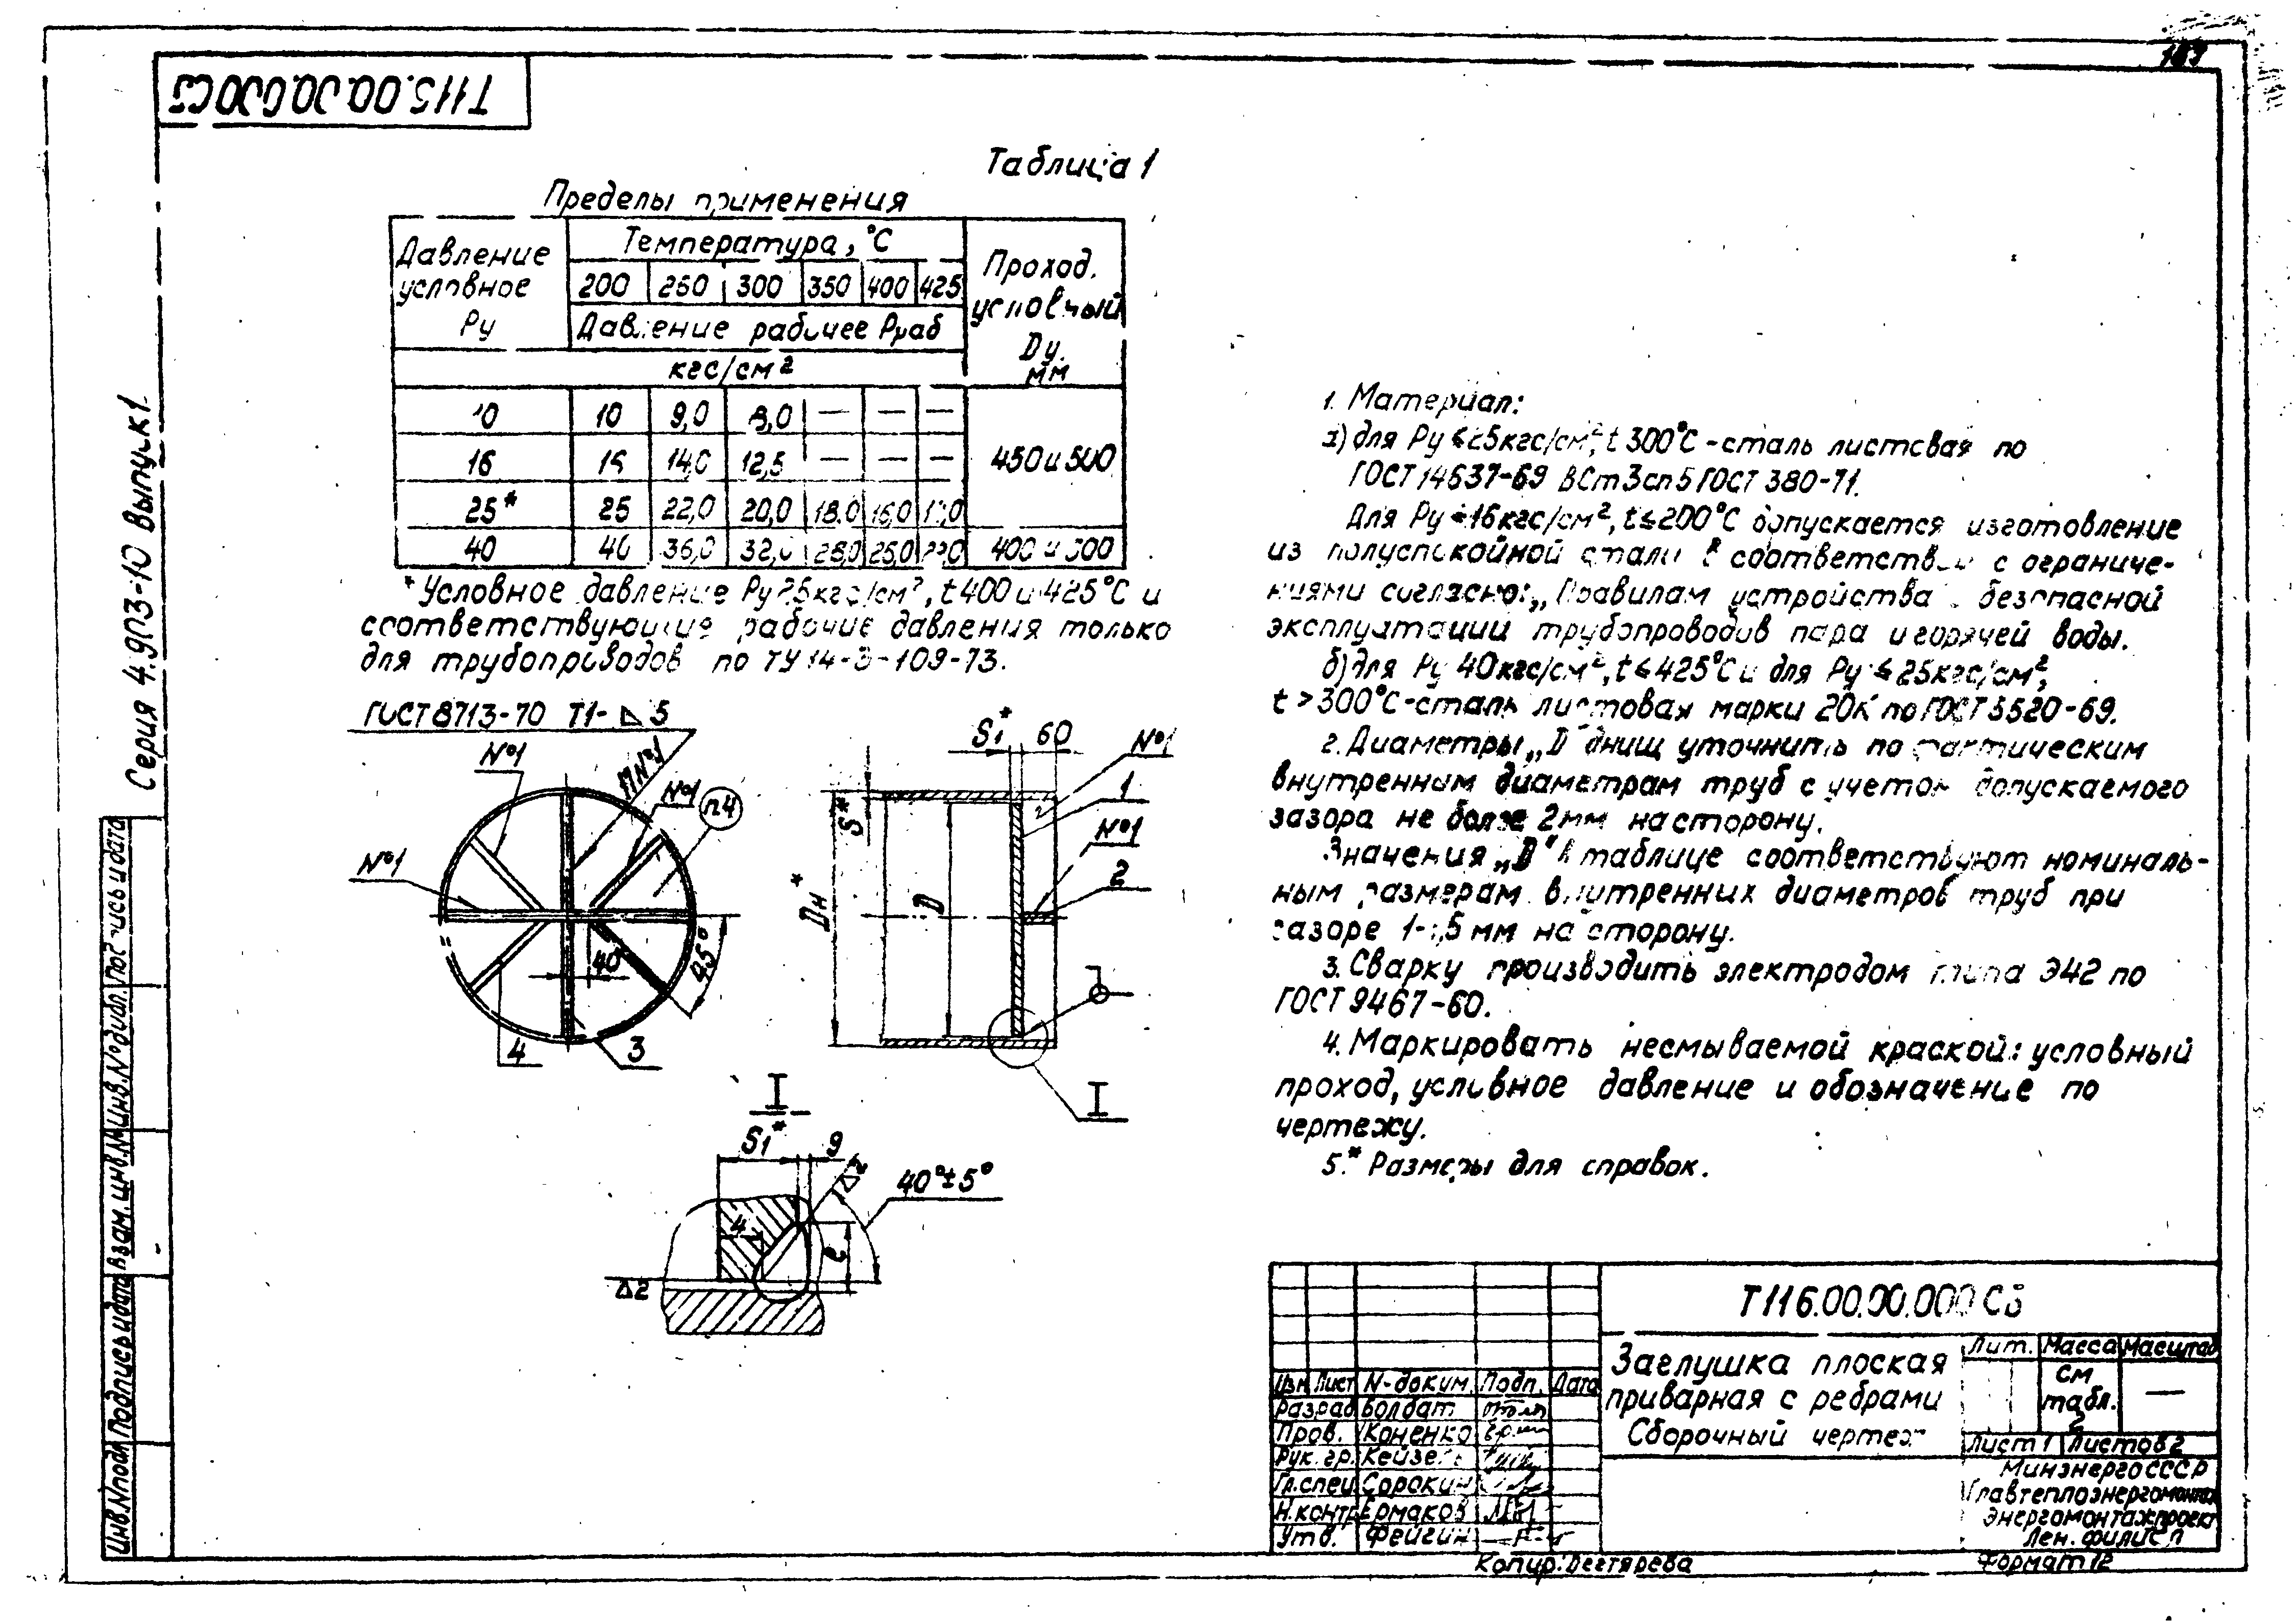 Т115.00.00.000СБ
Серия 4.903-10 Выпуск 1
Таблица 1
Пределы применения
Давление условное Ру
Температура, °С
Проход. условный Dу. мм
200 250 300 350 400 425
Давление рабочее Рраб
кгс/см²
10 10 9,0 8,0 — — —
16 16 14,0 12,5 — — — 450 и 500
25* 25 22,0 20,0 18,0 16,0
40 40 36,0 32,0 28,0 25,0 400 и
* Условное давление Ру 25кгс/см², t 400 и 425°С и
соответствующие рабочие давления только
для трубопроводов по ТУ 14-3-109-73.
ГОСТ 8713-70 Т1-◺5
№1
ПN°1
№1
п4
№1
40
45°
4
3
S1* 60
№1
1
S*
№1
2
Dн*
D
I
I
S1* 9
◺2
40°±5°
4
е
◺2
1. Материал:
а) для Ру ≤25кгс/см², t 300°С - сталь листовая по
ГОСТ 14637-69 ВСт3сп5 ГОСТ 380-71.
Для Ру ≤16кгс/см², t≤200°С допускается изготовление
из полуспокойной стали в соответствии с ограниче-
ниями согласно: „Правилам устройства безопасной
эксплуатации трубопроводов пара и горячей воды.
б) для Ру 40кгс/см², t≤425°С и для Ру ≤25кгс/см²,
t >300°С-сталь листовая марки 20К по ГОСТ 5520-69.
2. Диаметры „D" днищ уточнить по фактическим
внутренним диаметрам труб с учетом допускаемого
зазора не более 2мм на сторону.
Значения „D" в таблице соответствуют номиналь-
ным размерам внутренних диаметров труб при
зазоре 1-1,5 мм на сторону.
3. Сварку производить электродом типа Э42 по
ГОСТ 9467-60.
4. Маркировать несмываемой краской: условный
проход, условное давление и обозначение по
чертежу.
5.* Размеры для справок.
Т116.00.00.000 СБ
Заглушка плоская
приварная с ребрами
Сборочный чертеж
Лит. Масса Масштаб
см табл. 2 —
Лист 1 Листов 2
Минэнерго СССР
Главтеплоэнергомонтаж
Энергомонтажпроект
Лен. филиал
Изм Лист N-докум. Подп. Дата
Разраб Болбат
Пров. Коненко
Рук. гр. Кейзель
Гр.спец Сорокин
Н.контр Ермаков
Утв. Фейгин
Копир: Дегтярева Формат 12
Инв.Nподл Подпись и дата Взам.инв.№ Инв.N°дубл. Подпись и дата